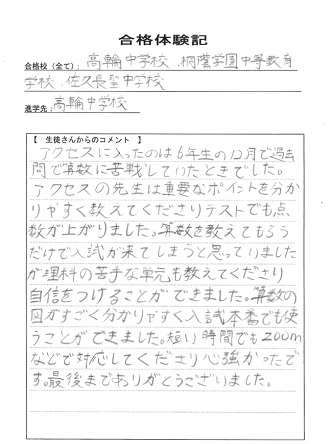 合格体験記
合格校（全て）: 高輪中学校、桐蔭学園中等教育
学校、佐久長聖中学校
進学先: 高輪中学校
【 生徒さんからのコメント 】
アクセスに入ったのは6年生の12月で過去
問で算数に苦戦していたときでした。
アクセスの先生は重要なポイントを分か
りやすく教えてくださりテストでも点
数が上がりました。算数を教えてもらう
だけで入試が来てしまうと思っていました
が理科の苦手な単元も教えてくださり
自信をつけることができました。算数の
図がすごく分かりやすく入試本番でも使
うことができました。短い時間でもzoom
などで対応してくださり心強かったで
す。最後までありがとうございました。